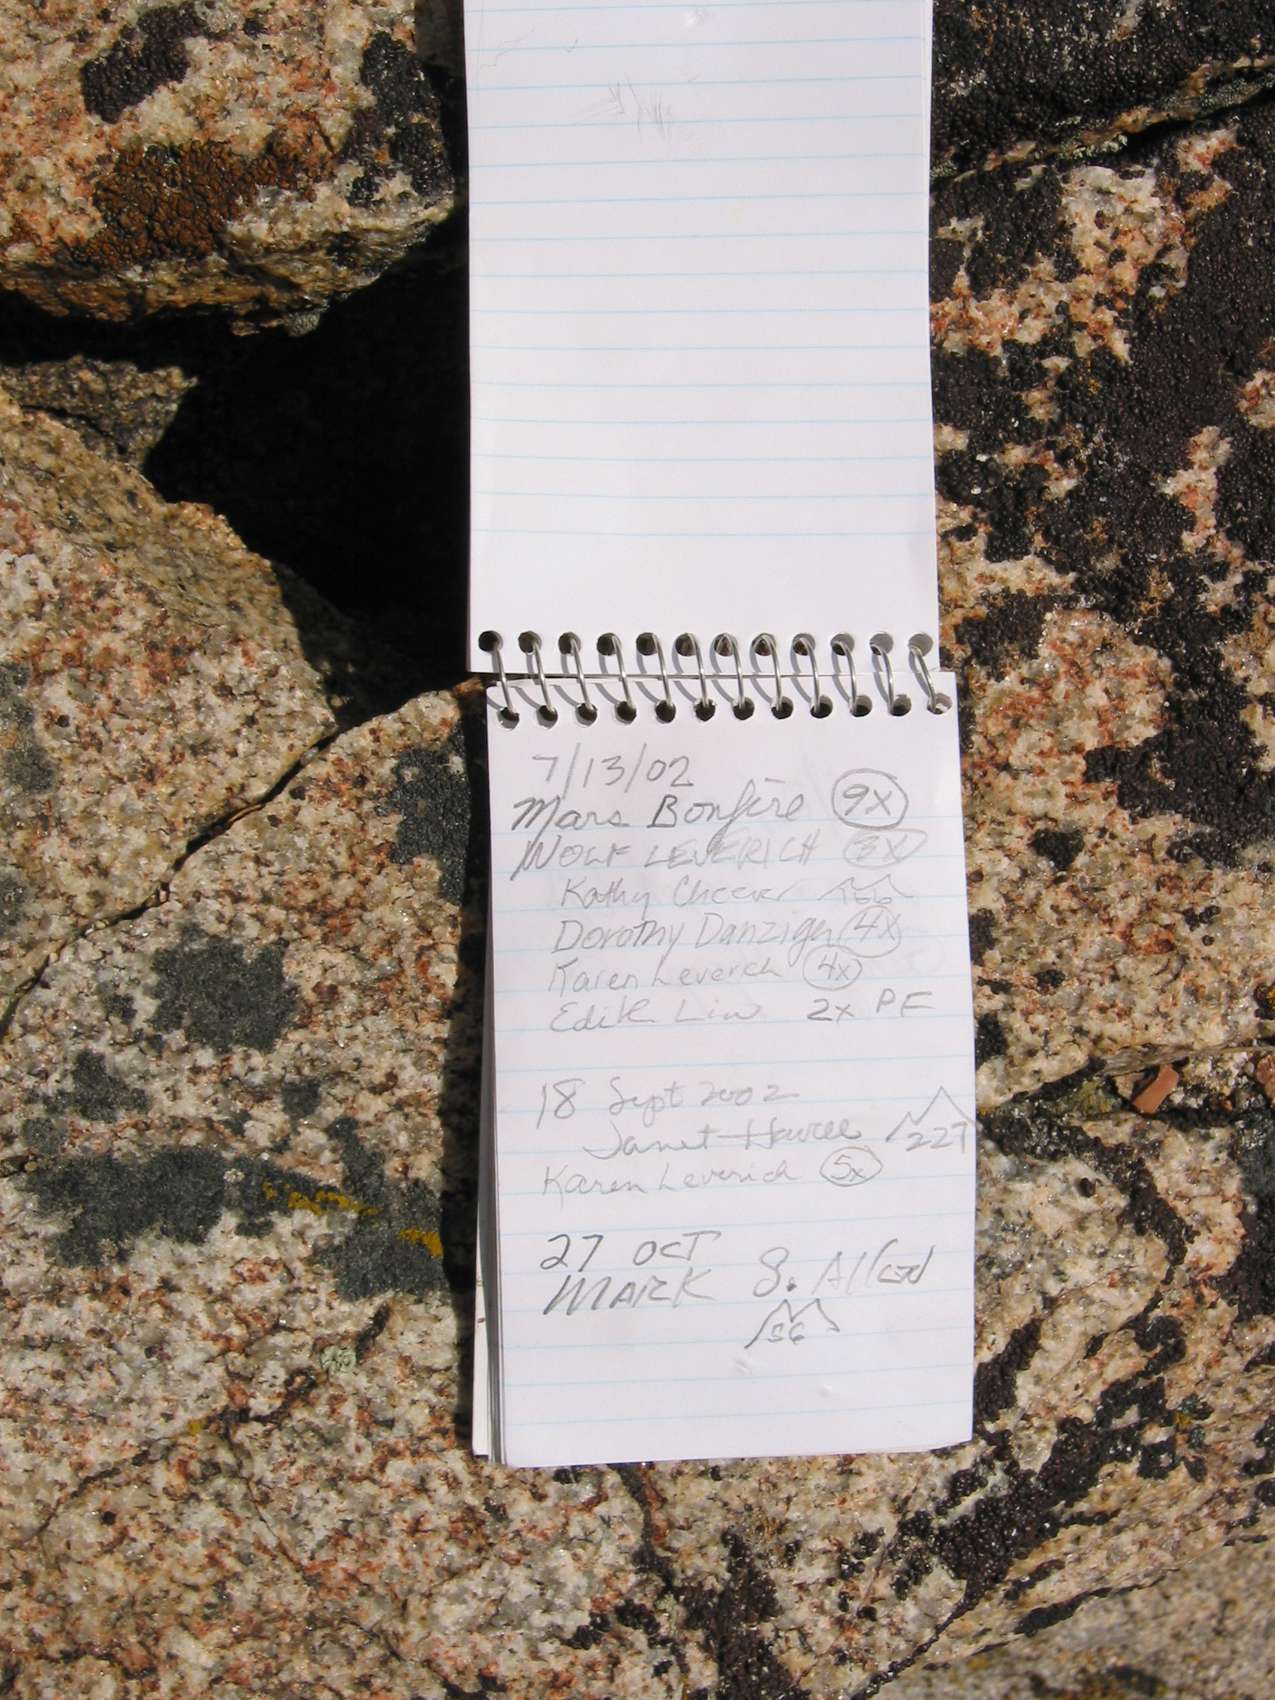 7/13/02
Mars Bonfire 9X
WOLF LEVERICH
Kathy Cheever 66
Dorothy Danziger 4X
Karen Leverich 4x
2x PF
18 Sept 2002
Janet Howell 227
Karen Leverich 5x
27 OCT
MARK S. Allen
56